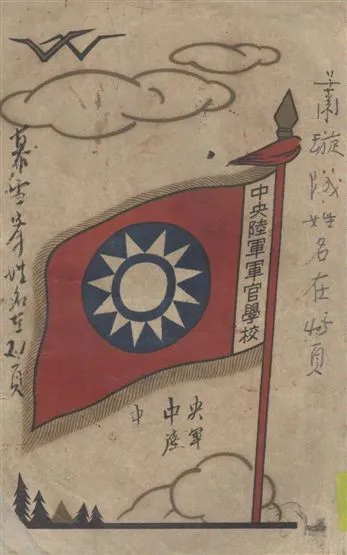 蕭璇 姓名在 頁
中央陸軍軍官學校
慕雪峯姓名在21頁
央軍
中陸
中